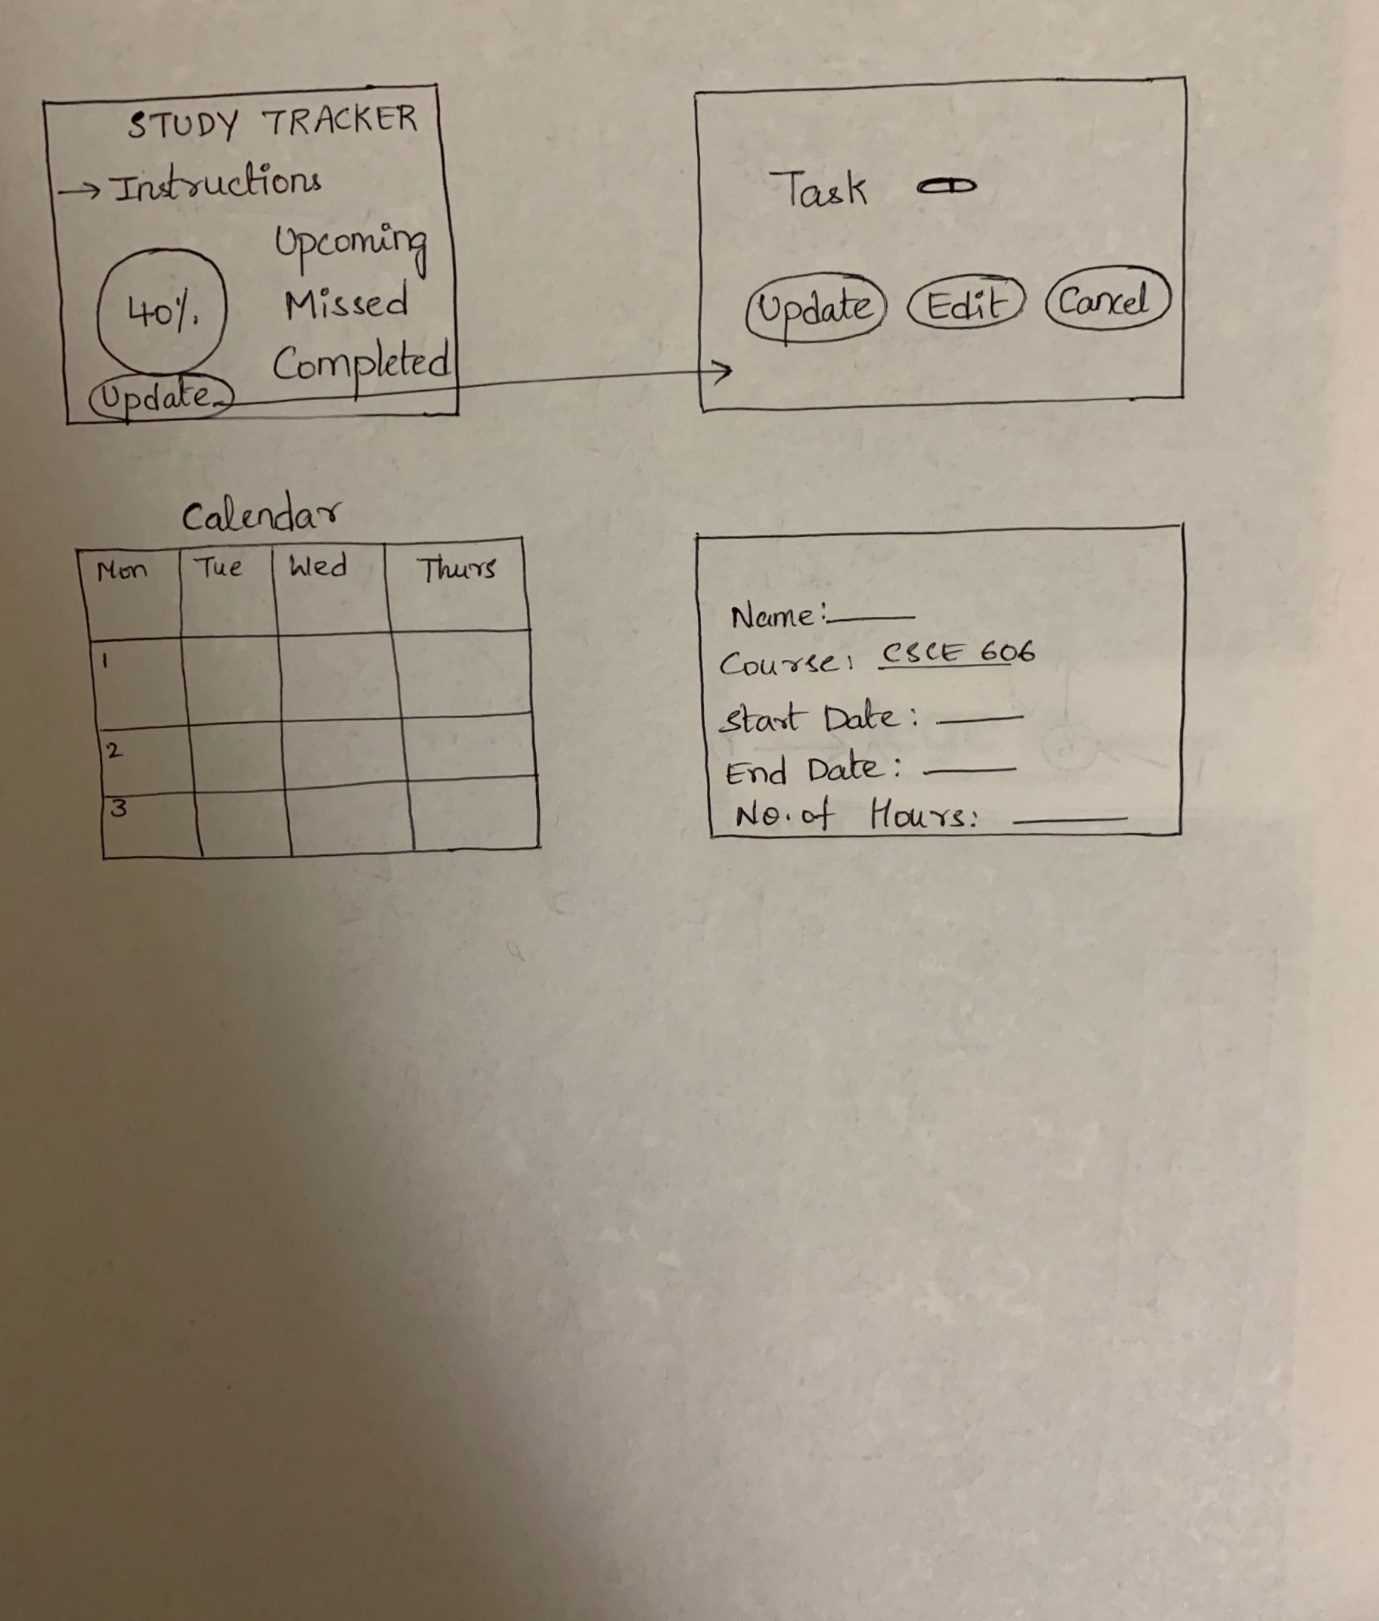 STUDY TRACKER
→ Instructions
Upcoming
40%
Missed
Completed
Update
Task
Update Edit Cancel
Calendar
Mon Tue Wed Thurs
1
2
3
Name:
Course: CSCE 606
Start Date:
End Date:
No. of Hours: